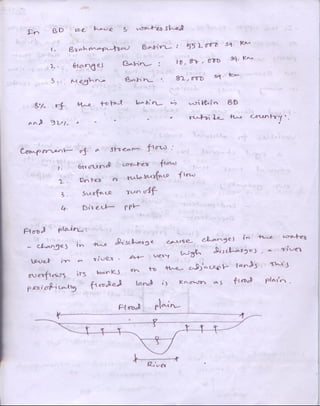 In BD we have 3 watershed
1. Brahmaputra Basin : 552,000 sq. Km
2. Ganges Basin : 10,87,000 sq. Km.
3. Meghna Basin : 82,000 sq. Km
8% of the total basin is within BD
and 92% " " " " outside the country.
Component of a stream flow :
1. Ground water flow
2. Inter or subsurface flow
3. Surface runoff
4. Direct ppt
Flood plain:
- Changes in the discharge cause changes in the water
level in a river. At very high discharges, a river
overflows its banks on to the adjacent lands. This
periodically flooded land is known as flood plain.
Flood plain
River